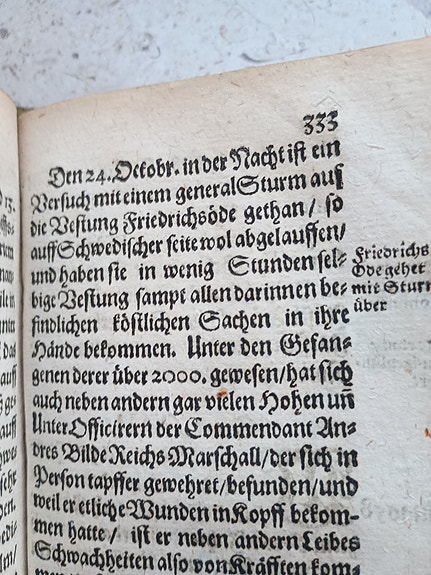 333
Den 24. Octobr. in der Nacht ist ein
Versuch mit einem general Sturm auf
die Vestung Friedrichsöde gethan / so
auff Schwedischer seite wol abgelauffen /
und haben sie in wenig Stunden sel-
bige Vestung sampt allen darinnen be-
findlichen köstlichen Sachen in ihre
Hände bekommen. Unter den Gefan-
genen derer über 2000. gewesen / hat sich
auch neben andern gar vielen Hohen uñ
Unter Officirern der Commendant An-
dres Bilde Reichs Marschall / der sich in
Person tapffer gewehret / befunden / und
weil er etliche Wunden in Kopff bekom-
men hatte / ist er neben andern Leibes
Schwachheiten also von Kräfften kom-
Friedrichs
Öde gehet
mit Sturm
über